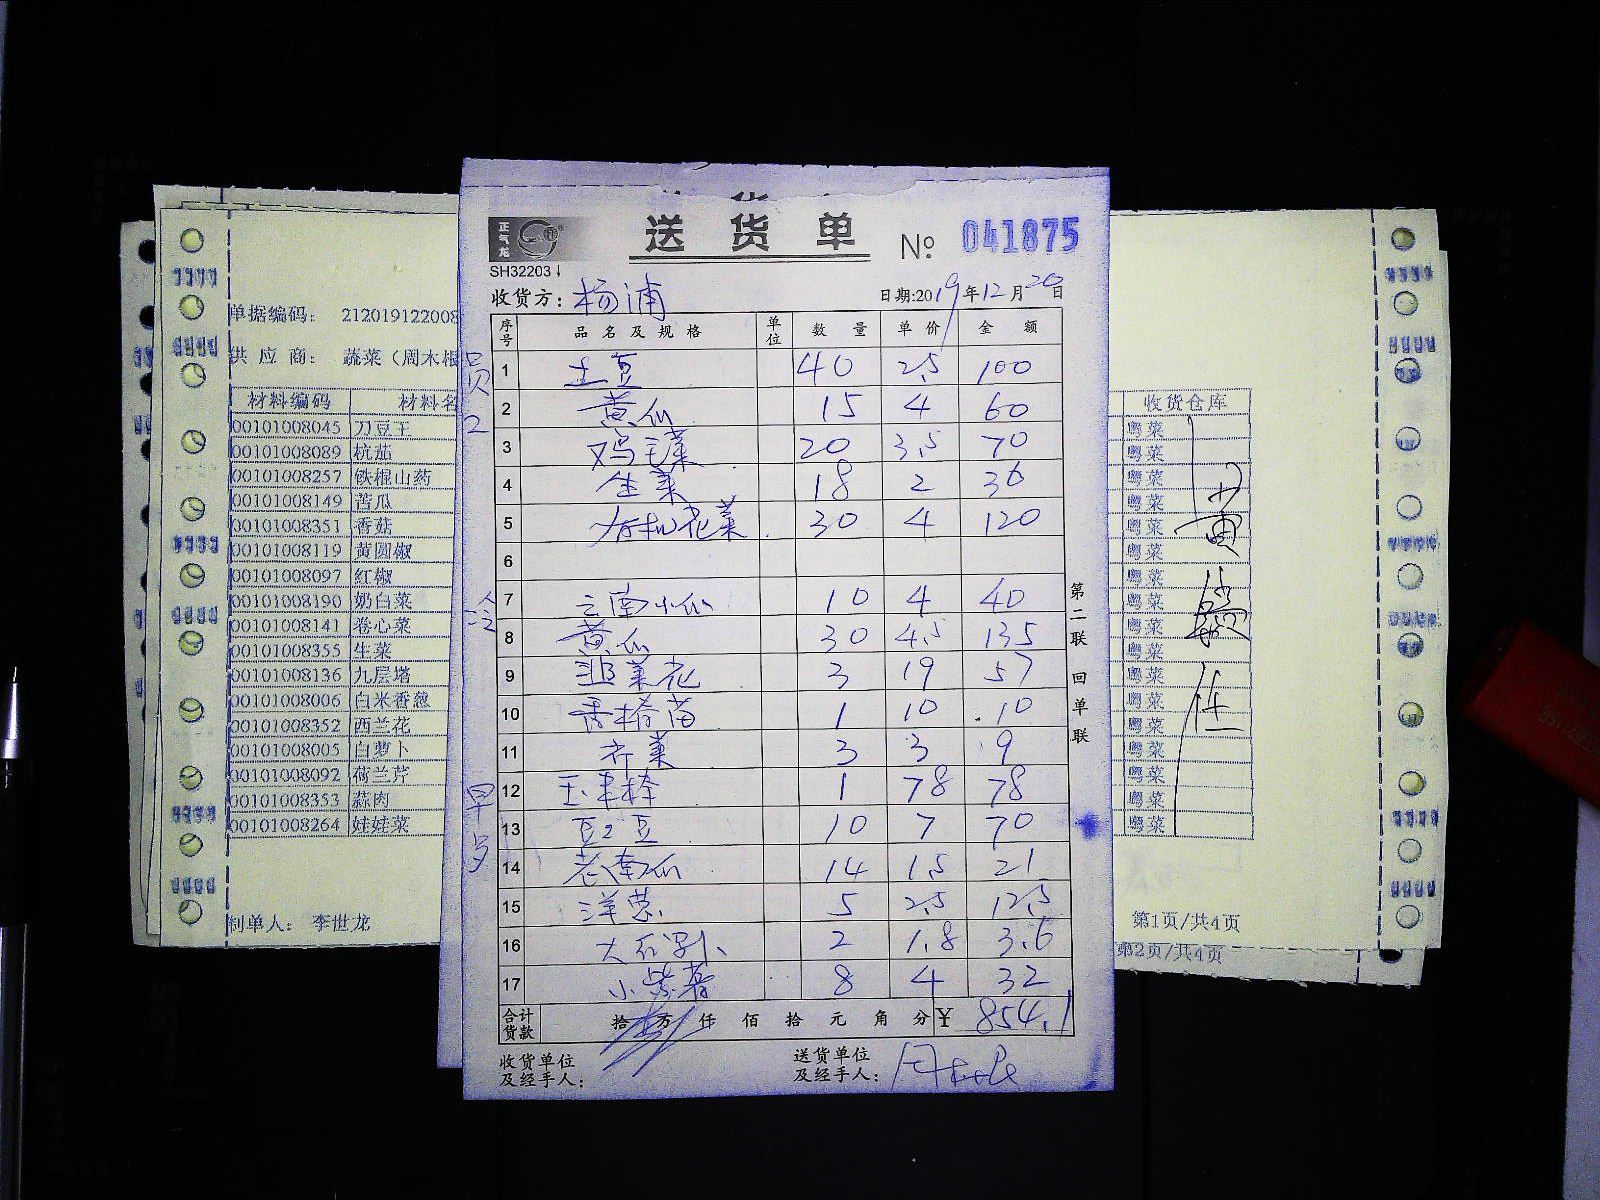 送货单 № 041875
正气龙
SH32203
收货方：杨浦 日期:2019年12月20日
序号 品名及规格 单位 数量 单价 金额
员2
1 土豆 40 2.5 100
2 黄瓜 15 4 60
3 鸡毛菜 20 3.5 70
4 生菜 18 2 36
5 有机花菜 30 4 120
6
冷
7 云南小瓜 10 4 40
8 黄瓜 30 4.5 135
9 韭菜花 3 19 57
10 香椿苗 1 10 10
11 芥菜 3 3 9
早
12 玉米棒 1 78 78
13 豆2豆 10 7 70
14 老南瓜 14 1.5 21
15 洋葱 5 2.5 12.5
16 大 卜 2 1.8 3.6
17 小紫薯 8 4 32
合计货款 拾万仟佰拾元角分 ¥ 854.1
收货单位及经手人：
送货单位及经手人：
第二联 回单联
单据编码： 212019122008
供应商： 蔬菜（周木根
材料编码 材料名
00101008045 刀豆王
00101008089 杭茄
00101008257 铁棍山药
00101008149 苦瓜
00101008351 香菇
00101008119 黄圆椒
00101008097 红椒
00101008190 奶白菜
00101008141 卷心菜
00101008355 生菜
00101008136 九层塔
00101008006 白米香葱
00101008352 西兰花
00101008005 白萝卜
00101008092 荷兰芹
00101008353 蒜肉
00101008264 娃娃菜
制单人： 李世龙
收货仓库
粤菜
粤菜
粤菜
粤菜
粤菜
粤菜
粤菜
粤菜
粤菜
粤菜
粤菜
粤菜
粤菜
粤菜
粤菜
粤菜
粤菜
第1页/共4页
第2页/共4页